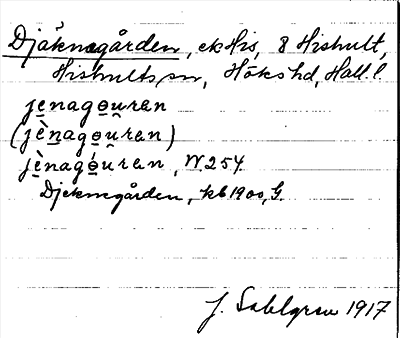 Djäknegården, ekHis, 8 Hishult,
Hishults sn, Höks hd, Hall. l.
jenagou̯ran
(jènagòu̯ran)
jènagóuran, W.254.
Djeknegården, kb1900, G.
J. Sahlgren 1917